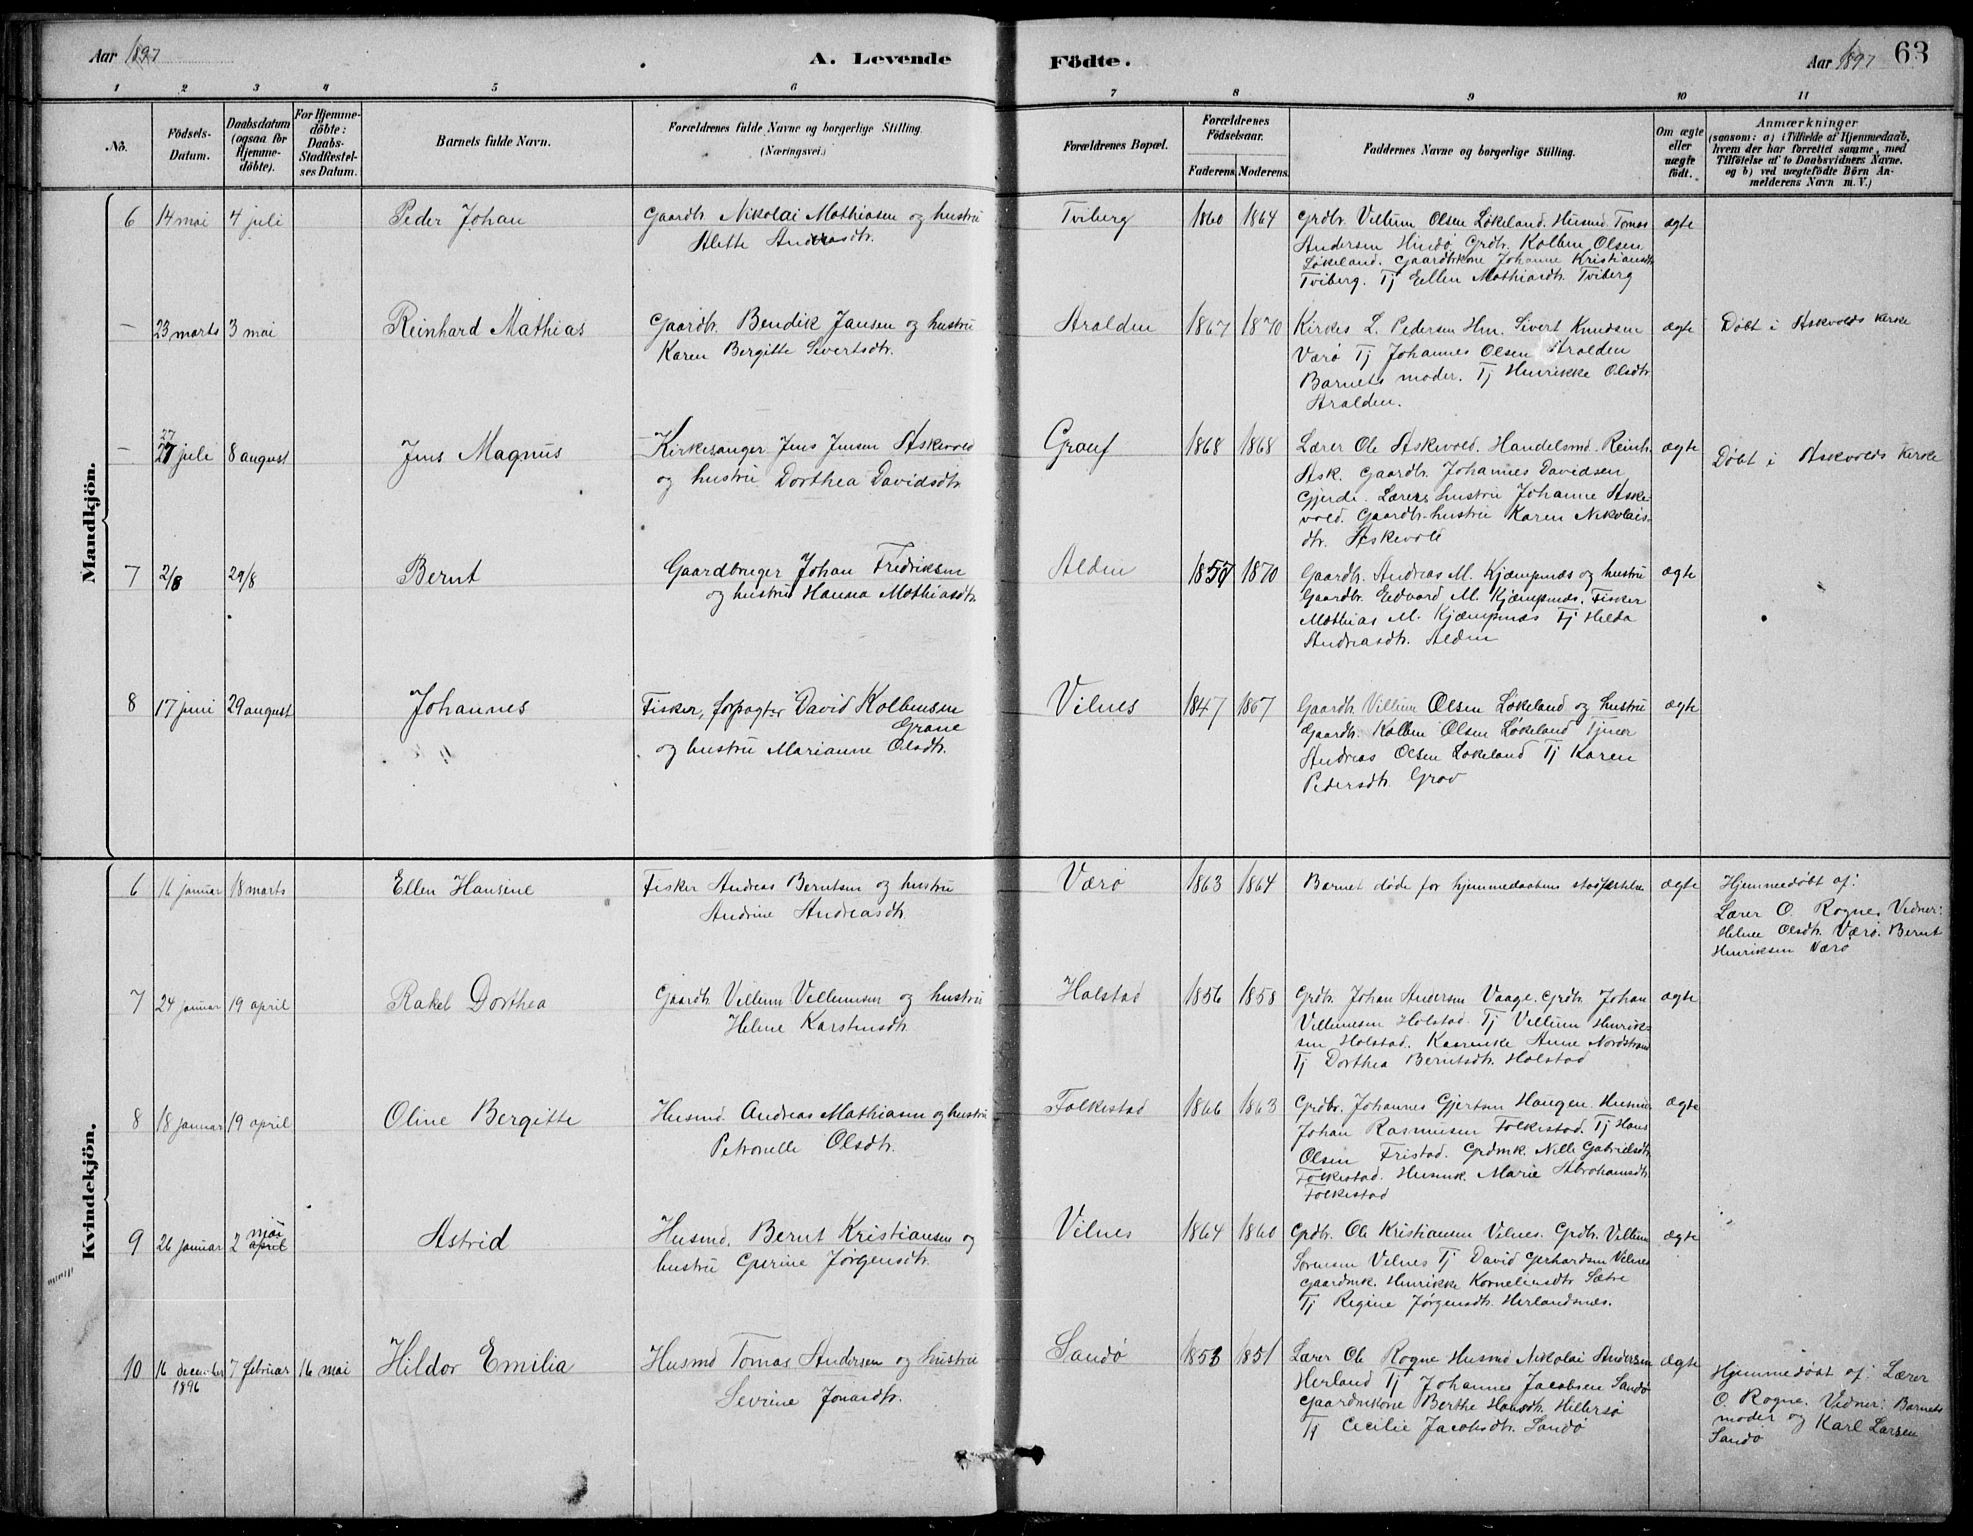 Aar 1897
A. Levende Födte.
Aar 1897 63
1 2 3 4 5 6 7 8 9 10 11
No.
Födsels-
Datum.
Daabsdatum
(ogsaa for
Hjemme-
döbte).
For Hjemme-
döbte:
Daabs-
Stadfæstel-
ses Datum.
Barnets fulde Navn.
Forældrenes fulde Navne og borgerlige Stilling.
(Næringsvei.)
Forældrenes Bopæl.
Forældrenes
Födselsaar.
Faderens Moderens
Faddernes Navne og borgerlige Stilling.
Om ægte
eller
uægte
födt.
Anmærkninger
(saasom: a) i Tilfælde af Hjemmedaab,
hvem der har forrettet samme, med
Tilföielse af to Daabsvidners Navne.
og b) ved uægtefödte Börn An-
melderens Navn m. V.)
Mandkjön.
6 14 mai 4 juli Peder Johan
Gaardbr. Nikolai Mathiasen og hustru
Alette Andreasdtr.
Tviberg 1860 1864
Grdbr. Villum Olsen Løkeland. Husmd. Tomas
Andersen Hindø. Grdbr. Kolben Olsen
Løkeland. Gaardbrkone Johanne Kristiansdtr.
Tviberg. Tj Ellen Mathiasdtr. Tviberg
ægte
- 23 marts 3 mai Reinhard Mathias
Gaardbr. Bendik Jansen og hustru
Karen Bergitte Sivertsdtr.
Aralden 1867 1870
Kirkes. L. Pedersen Hm. Sivert Knudsen
Værø Tj Johannes Olsen Aralden
Barnets moder. Tj Henrikke Olsdtr.
Aralden.
ægte Døbt i Askvolds kirke
- 27
27 juli 8 august Jens Magnus
Kirkesanger Jens Jensen Askevold
og hustru Dorthea Davidsdtr.
1868 1868
Lærer Ole Askevold. Handelsmd. Reinh.
Ask. Gaardbr. Johannes Davidsen
Gjerde. Lærers hustru Johanne Aske-
vold. Gaardbr. hustru Karen Nikolais-
dtr. Askevold
ægte Døbt i Askvolds kirke
7 2/8 29/8 Bernt
Gaardbruger Johan Fredriksen
og hustru Hanna Mathiasdtr.
Alden 1857 1870
Gaardbr. Andreas M. Kjæmpnæs og hustru
Gaardbr. Edvard M. Kjæmpnæs. Fisker
Mathias M. Kjæmpnæs Tj Hilda
Andreasdtr. Alden
ægte
8 17 juni 29 august Johannes
Fisker, forpagter David Kolbensen
Grane
og hustru Marianne Olsdtr.
Vilnes 1847 1867
Gaardbr. Villum Olsen Løkeland og hustru
Gaardbr. Kolben Olsen Løkeland Tjener
Andreas Olsen Løkeland Tj Karen
Pedersdtr. Grov
ægte
Kvindekjön.
6 16 januar 18 marts Ellen Hansine
Fisker Andreas Berntsen og hustru
Andrine Andreasdtr.
Værø 1863 1864
Barnet døde før hjemmedaabens stadfæstelse
ægte
Hjemmedøbt af:
Lærer O. Rogne. Vidner:
Helene Olsdtr. Værø. Bernt
Henriksen Værø
7 24 januar 19 april Rakel Dorthea
Gaardbr. Villum Villumsen og hustru
Helene Karstensdtr.
Holstad 1856 1858
Grdbr. Johan Andersen Vaage. Grdbr. Johan
Villumsen Holstad. Tj Villum Henrik-
sen Holstad. Anne Nordstrand
Tj Dorthea Berntsdtr. Holstad
ægte
8 18 januar 19 april Oline Bergitte
Husmd. Andreas Mathiasen og hustru
Petronelle Olsdtr.
Folkestad 1866 1863
Grdbr. Johannes Gjertsen Haugen. Husmd
Johan Rasmusen Folkestad. Tj Hans
Olsen Fristad. Grdmk. Nille Gabrielsdtr.
Folkestad. Husmk. Marie Abrahamsdtr.
Folkestad
ægte
9 26 januar 2 mai
april Astrid
Husmd. Bernt Kristiansen og
hustru Gurine Jørgensdtr.
Vilnes 1864 1860
Grdbr. Ole Kristiansen Vilnes. Grdbr. Villum
Sørensen Vilnes Tj David Gerhardsen Vilnes
Gaardmk. Henrikke Korneliusdtr. Sætre
Tj Regine Jørgensdtr. Herlandsnæs.
ægte
10 16 december
1896 7 februar 16 mai Hildor Emilia
Husmd Tomas Andersen og hustru
Sevrine Jonasdtr.
Sandø 1853 1851
Lærer Ole Rogne Husmd Nikolai Andersen
Herland Tj Johannes Jacobsen Sandø
Gaardmkone Berthe Hansdtr. Hillersø
Tj Cecilie Jacobsdtr. Sandø
ægte
Hjemmedøbt af: Lærer
O. Rogne. Vidner: Barnets
moder og Karl Larsen
Sandø